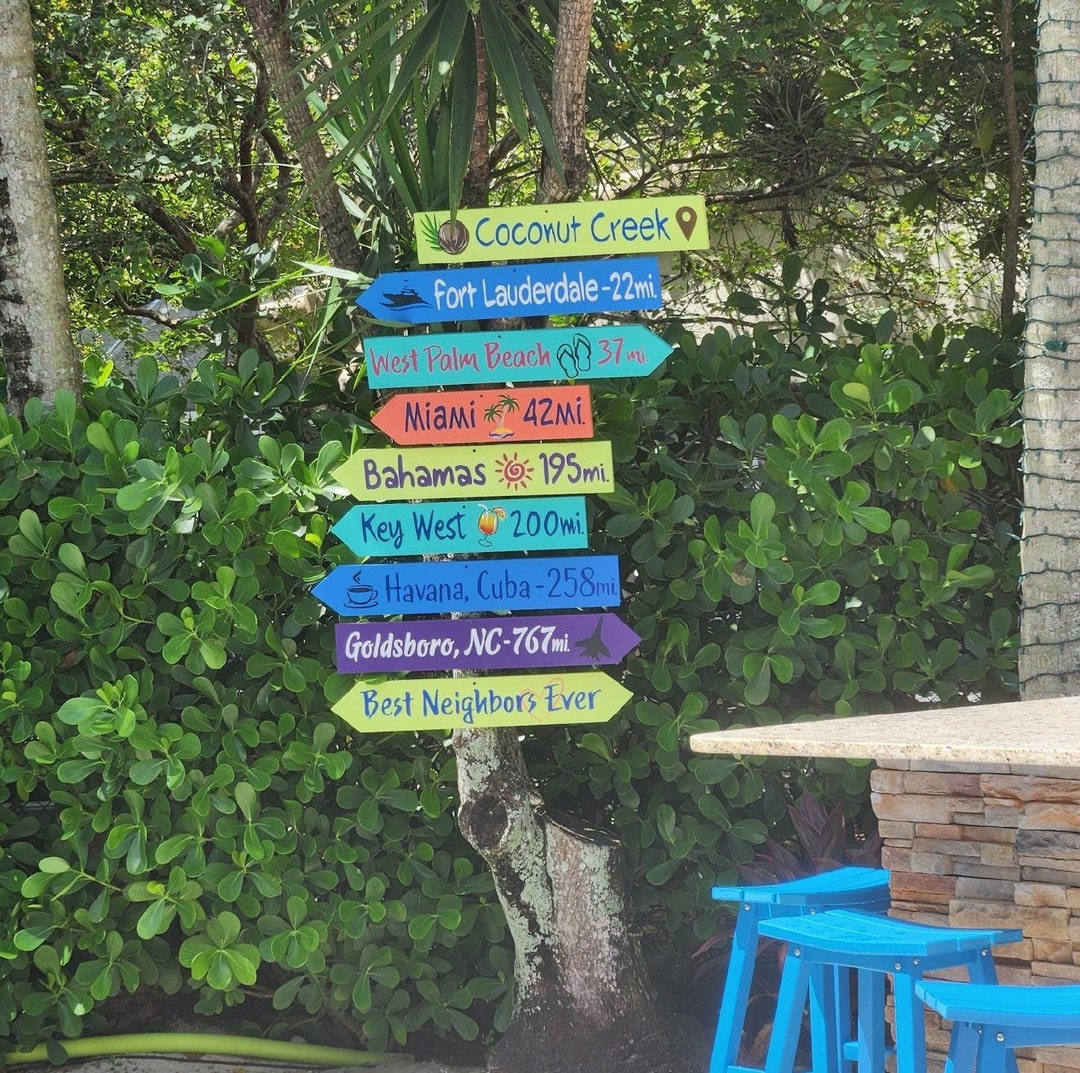 Coconut Creek
Fort Lauderdale-22mi.
West Palm Beach 37mi.
Miami 42Mi.
Bahamas 195mi.
Key West 200mi.
Havana, Cuba-258mi.
Goldsboro, NC-767mi.
Best Neighbors Ever